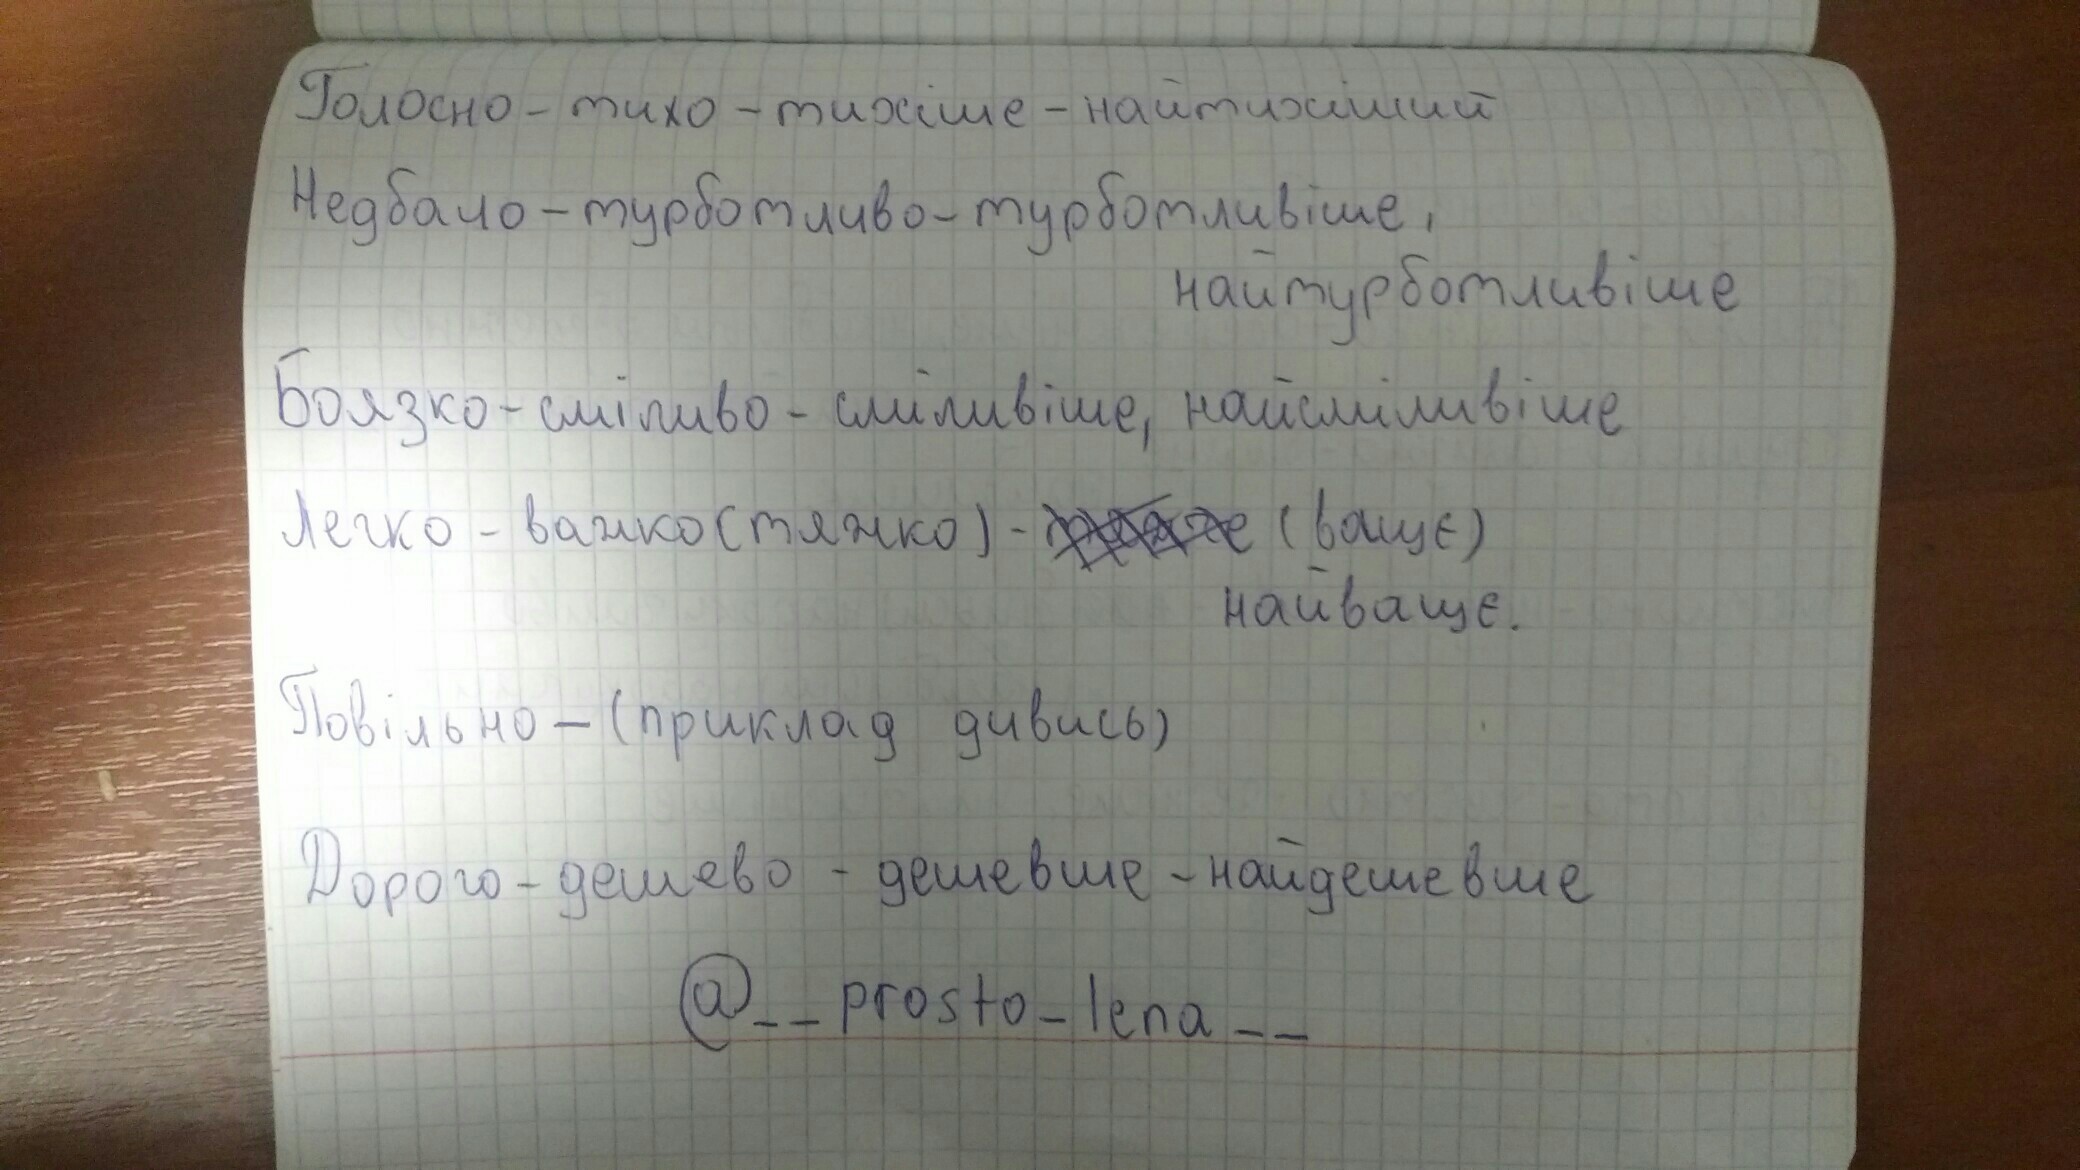 Голосно - тихо - тихіше - найтихіший
Недбало - турботливо - турботливіше,
найтурботливіше
Боязко - сміливо - сміливіше, найсміливіше
Легко - важко (тяжко) - (ващє)
найващє.
Повільно - (приклад дивись)
Дорого - дешево - дешевше - найдешевше
@__prosto_lena__